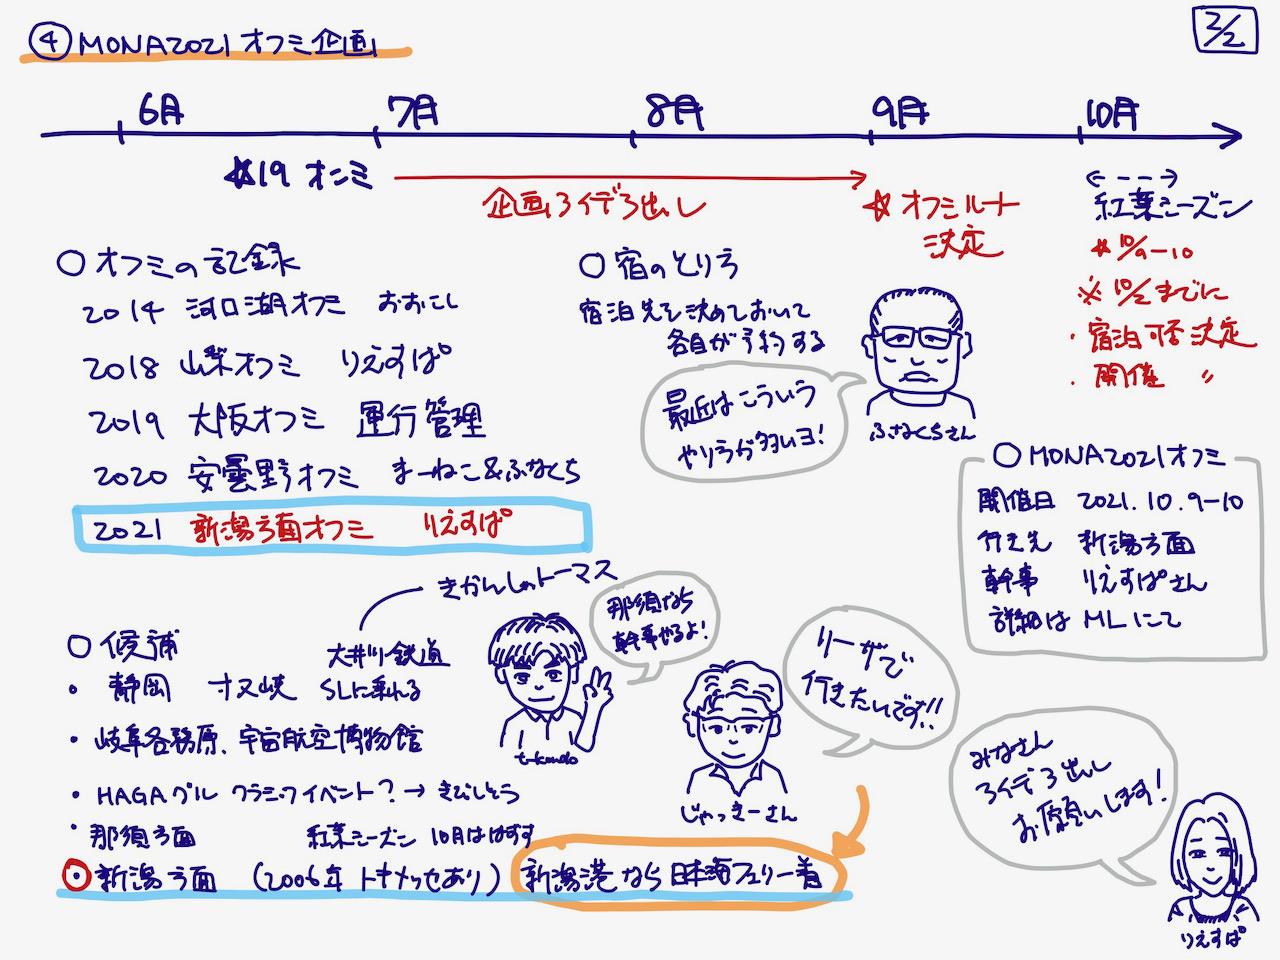 ④ MONA2021 オフミ企画
2/2
6月 7月 8月 9月 10月
☆19 オンミ
企画アイデア出し
☆ オフミルート
決定
紅葉シーズン
☆ 10/9-10
※ 10/2までに
・宿泊可否決定
・開催 〃
○ オフミの記録
2014 河口湖オフミ おおにし
2018 山梨オフミ りえすぱ
2019 大阪オフミ 運行管理
2020 安曇野オフミ まーねこ&ふなくち
2021 新潟方面オフミ りえすぱ
○ 宿のとり方
宿泊先を決めておいて
各自が予約する
最近はこういう
やり方が多いヨ!
ふなくちさん
○ MONA2021オフミ
開催日 2021.10.9-10
行き先 新潟方面
幹事 りえすぱさん
詳細は MLにて
きかんしゃトーマス
○ 候補
大井川鉄道
・静岡 寸又峡 SLに乗れる
・岐阜各務原、宇宙航空博物館
・HAGAグル クラシックイベント?→きびしそう
・那須方面 紅葉シーズン 10月ははずす
⦿新潟方面 (2006年 トキメッセあり) 新潟港なら日本海フェリー着
那須なら
幹事やるよ!
t-kondo
リーザで
行きたいです!!
じゃっきーさん
みなさん
アイデア出し
お願いします!
りえすぱ